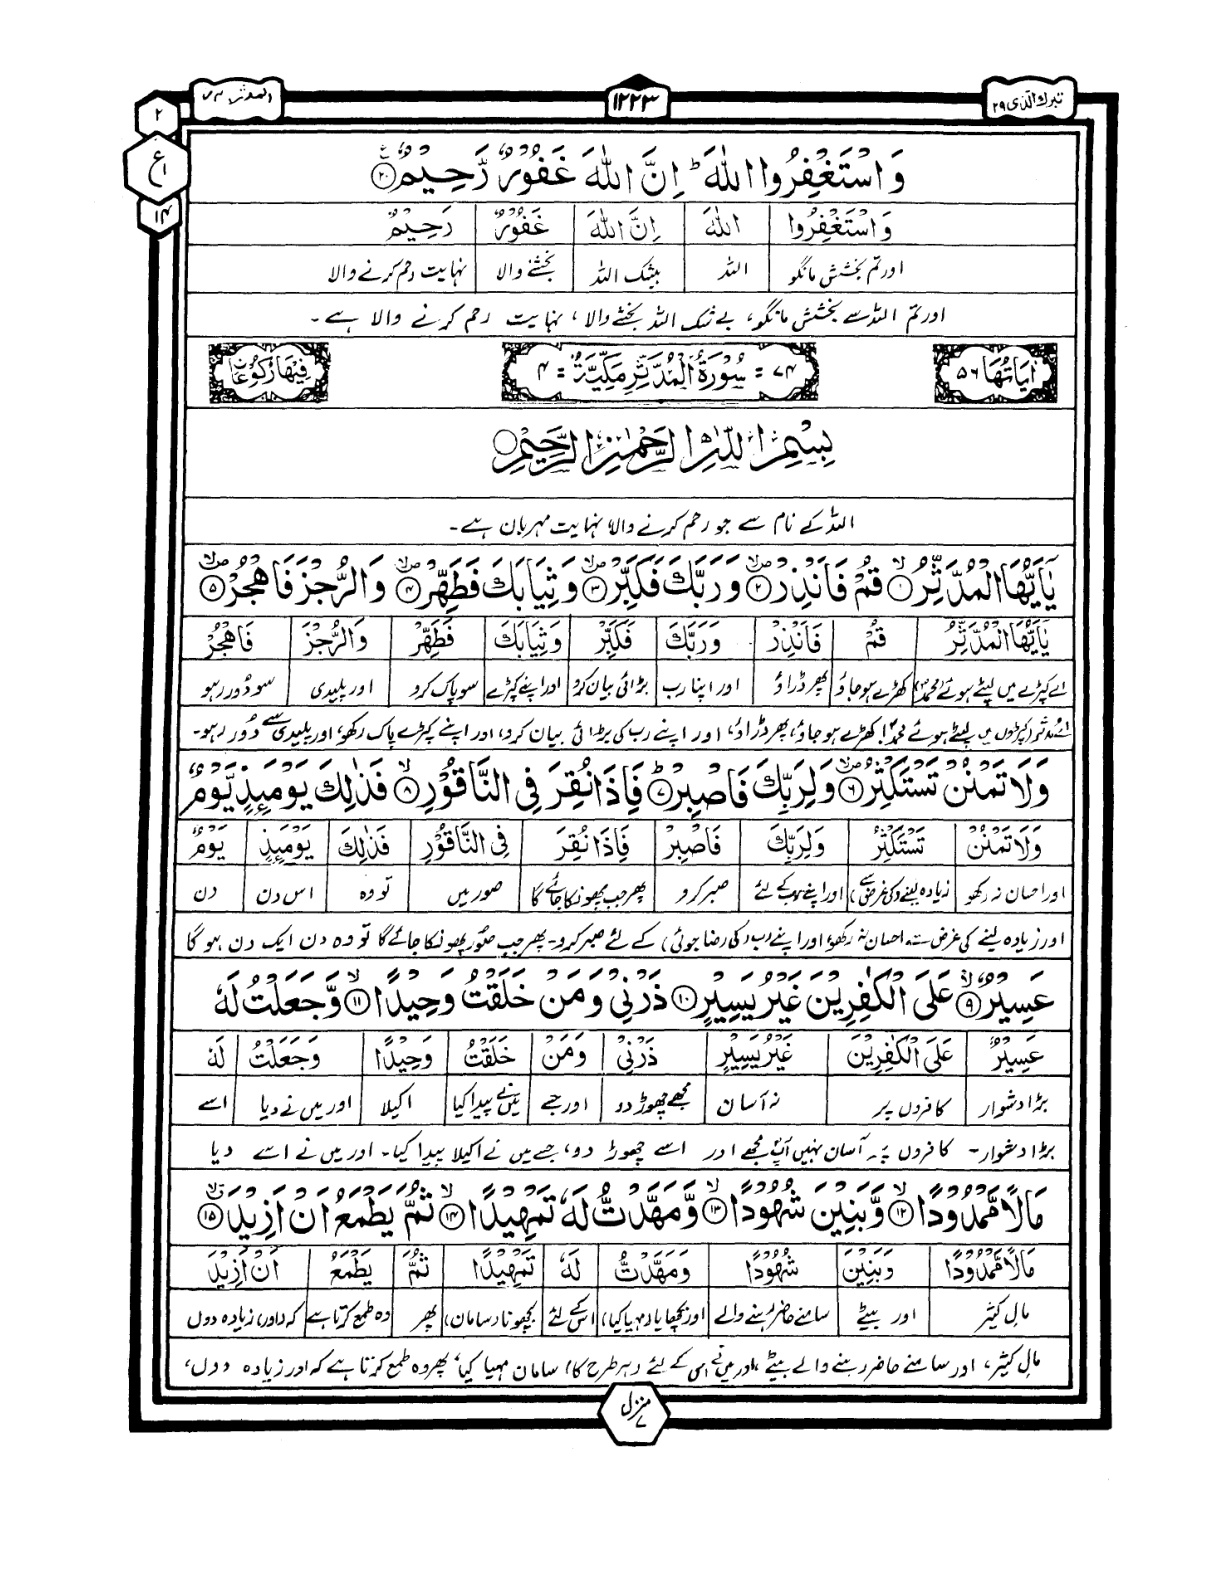 تبرك الذی ۲۹
۱۲۲۳
المدثر ۷۴
۲
ع
۱۴
وَاسْتَغْفِرُوا اللّٰهَ ؕ اِنَّ اللّٰهَ غَفُوْرٌ رَّحِيْمٌ ۲۰
وَاسْتَغْفِرُوا اللّٰهَ اِنَّ اللّٰهَ غَفُوْرٌ رَحِيْمٌ
اور تم بخشش مانگو اللہ بیشک اللہ بخشنے والا نہایت رحم کرنے والا
اور تم اللہ سے بخشش مانگو، بے شک اللہ بخشنے والا، نہایت رحم کرنے والا ہے۔
اٰيَاتُهَا ۵۶
۷۴ = سُوْرَةُ الْمُدَّثِّرِ مَكِّيَّةٌ = ۴
فِيْهَا رُكُوْعَانِ
بِسْمِ اللّٰهِ الرَّحْمٰنِ الرَّحِيْمِ
اللہ کے نام سے جو رحم کرنے والا نہایت مہربان ہے۔
يٰۤاَيُّهَا الْمُدَّثِّرُ ۙ۱ قُمْ فَاَنْذِرْ ۪ۙ۲ وَرَبَّكَ فَكَبِّرْ ۪ۙ۳ وَثِيَابَكَ فَطَهِّرْ ۪ۙ۴ وَالرُّجْزَ فَاهْجُرْ ۪ۙ۵
يٰۤاَيُّهَا الْمُدَّثِّرُ قُمْ فَاَنْذِرْ وَرَبَّكَ فَكَبِّرْ وَثِيَابَكَ فَطَهِّرْ وَالرُّجْزَ فَاهْجُرْ
اے کپڑے میں لپٹے ہوئے (محمدؐ) کھڑے ہو جاؤ پھر ڈراؤ اور اپنا رب بڑائی بیان کرو اور اپنے کپڑے سو پاک کرو اور پلیدی سو دور رہو
اے مدثر (کپڑوں میں) لپٹے ہوئے محمدؐ! کھڑے ہو جاؤ، پھر ڈراؤ، اور اپنے رب کی بڑائی بیان کرو، اور اپنے کپڑے پاک رکھو، اور پلیدی سے دُور رہو۔
وَلَا تَمْنُنْ تَسْتَكْثِرُ ۪ۙ۶ وَلِرَبِّكَ فَاصْبِرْ ؕ۷ فَاِذَا نُقِرَ فِى النَّاقُوْرِ ۙ۸ فَذٰلِكَ يَوْمَىِٕذٍ يَّوْمٌ
وَلَا تَمْنُنْ تَسْتَكْثِرُ وَلِرَبِّكَ فَاصْبِرْ فَاِذَا نُقِرَ فِى النَّاقُوْرِ فَذٰلِكَ يَوْمَىِٕذٍ يَوْمٌ
اور احسان نہ رکھو زیادہ لینے (کی غرض سے) اور اپنے رب کے لئے صبر کرو پھر جب پھونکا جائے گا صور میں تو وہ اس دن دن
اور زیادہ لینے کی غرض سے احسان نہ رکھو، اور اپنے رب (کی رضا جوئی) کے لئے صبر کرو۔ پھر جب صُور پھونکا جائے گا تو وہ دن ایک دن ہو گا
عَسِيْرٌ ۙ۹ عَلَى الْكٰفِرِيْنَ غَيْرُ يَسِيْرٍ ۱۰ ذَرْنِىْ وَمَنْ خَلَقْتُ وَحِيْدًا ۙ۱۱ وَّجَعَلْتُ لَهٗ
عَسِيْرٌ عَلَى الْكٰفِرِيْنَ غَيْرُ يَسِيْرٍ ذَرْنِىْ وَمَنْ خَلَقْتُ وَحِيْدًا وَجَعَلْتُ لَهٗ
بڑا دشوار کافروں پر نہ آسان مجھے چھوڑ دو اور جسے میں نے پیدا کیا اکیلا اور میں نے دیا اسے
بڑا دشوار۔ کافروں پر آسان نہیں آپؐ مجھے اور اسے چھوڑ دو، جسے میں نے اکیلا پیدا کیا۔ اور میں نے اسے دیا
مَالًا مَّمْدُوْدًا ۙ۱۲ وَّبَنِيْنَ شُهُوْدًا ۙ۱۳ وَّمَهَّدْتُّ لَهٗ تَمْهِيْدًا ۙ۱۴ ثُمَّ يَطْمَعُ اَنْ اَزِيْدَ ۱۵
مَالًا مَّمْدُوْدًا وَبَنِيْنَ شُهُوْدًا وَمَهَّدْتُّ لَهٗ تَمْهِيْدًا ثُمَّ يَطْمَعُ اَنْ اَزِيْدَ
مال کثیر اور بیٹے سامنے حاضر رہنے والے اور بچھایا (مہیا کیا) اس کے لئے بچھونا (سامان) پھر وہ طمع کرتا ہے کہ (اور) زیادہ دوں
مال کثیر، اور سامنے حاضر رہنے والے بیٹے، اور میں نے اس کے لئے (ہر طرح کا) سامان مہیا کیا، پھر وہ طمع کرتا ہے کہ اور زیادہ دوں،
منزل ۷